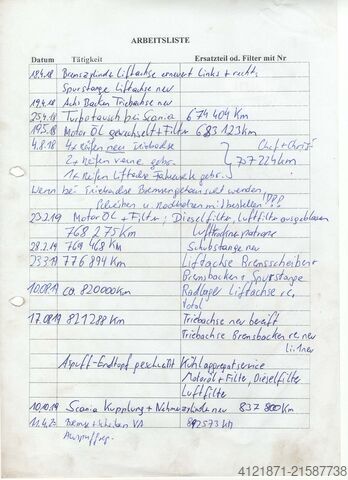 ARBEITSLISTE
Datum Tätigkeit Ersatzteil od. Filter mit Nr
18.4.18 Bremszylinder Liftachse erneuert Links + rechts
Spurstange Liftachse neu
19.4.18 Achs Backen Triebachse neu
25.4.18 Turbotausch bei Scania 674 404 Km
19.5.18 Motor ÖL gewechselt + Filter 683 123 km
4.8.18 4x Reifen neu Triebachse Chef + Christi
2x Reifen vorne gebr. 707 224 km
1x Reifen Liftachse Fahrerseite gebr.
Wenn bei Triebachse Bremsen getauscht werden,
Scheiben u. mitbestellen!!!
23.2.19 Motor ÖL + Filter, Dieselfilter, Luftfilter ausgeblasen
768 275 km Lufttrocknerpatrone
28.2.19 769 468 Km Schubstange neu
23.3.19 776 894 Km Liftachse Bremsscheiben +
Bremsbacken + Spurstange
10.08.19 ca. 820000 Km Radlager Liftachse re,
total
17.08.19 821 288 Km Triebachse neu bereift
Triebachse Bremsbacken re, neu
li. neu
Auspuff-Endtopf geschweißt Kühlaggregatservice
Motoröl + Filter, Dieselfilter
Luftfilter
10.10.19 Scania Kupplung + Nehmerzylinder neu 837 800 Km
11.4.20 Bremse + Scheiben VA 892573 km
Auspuffrep.
4121871-21587738